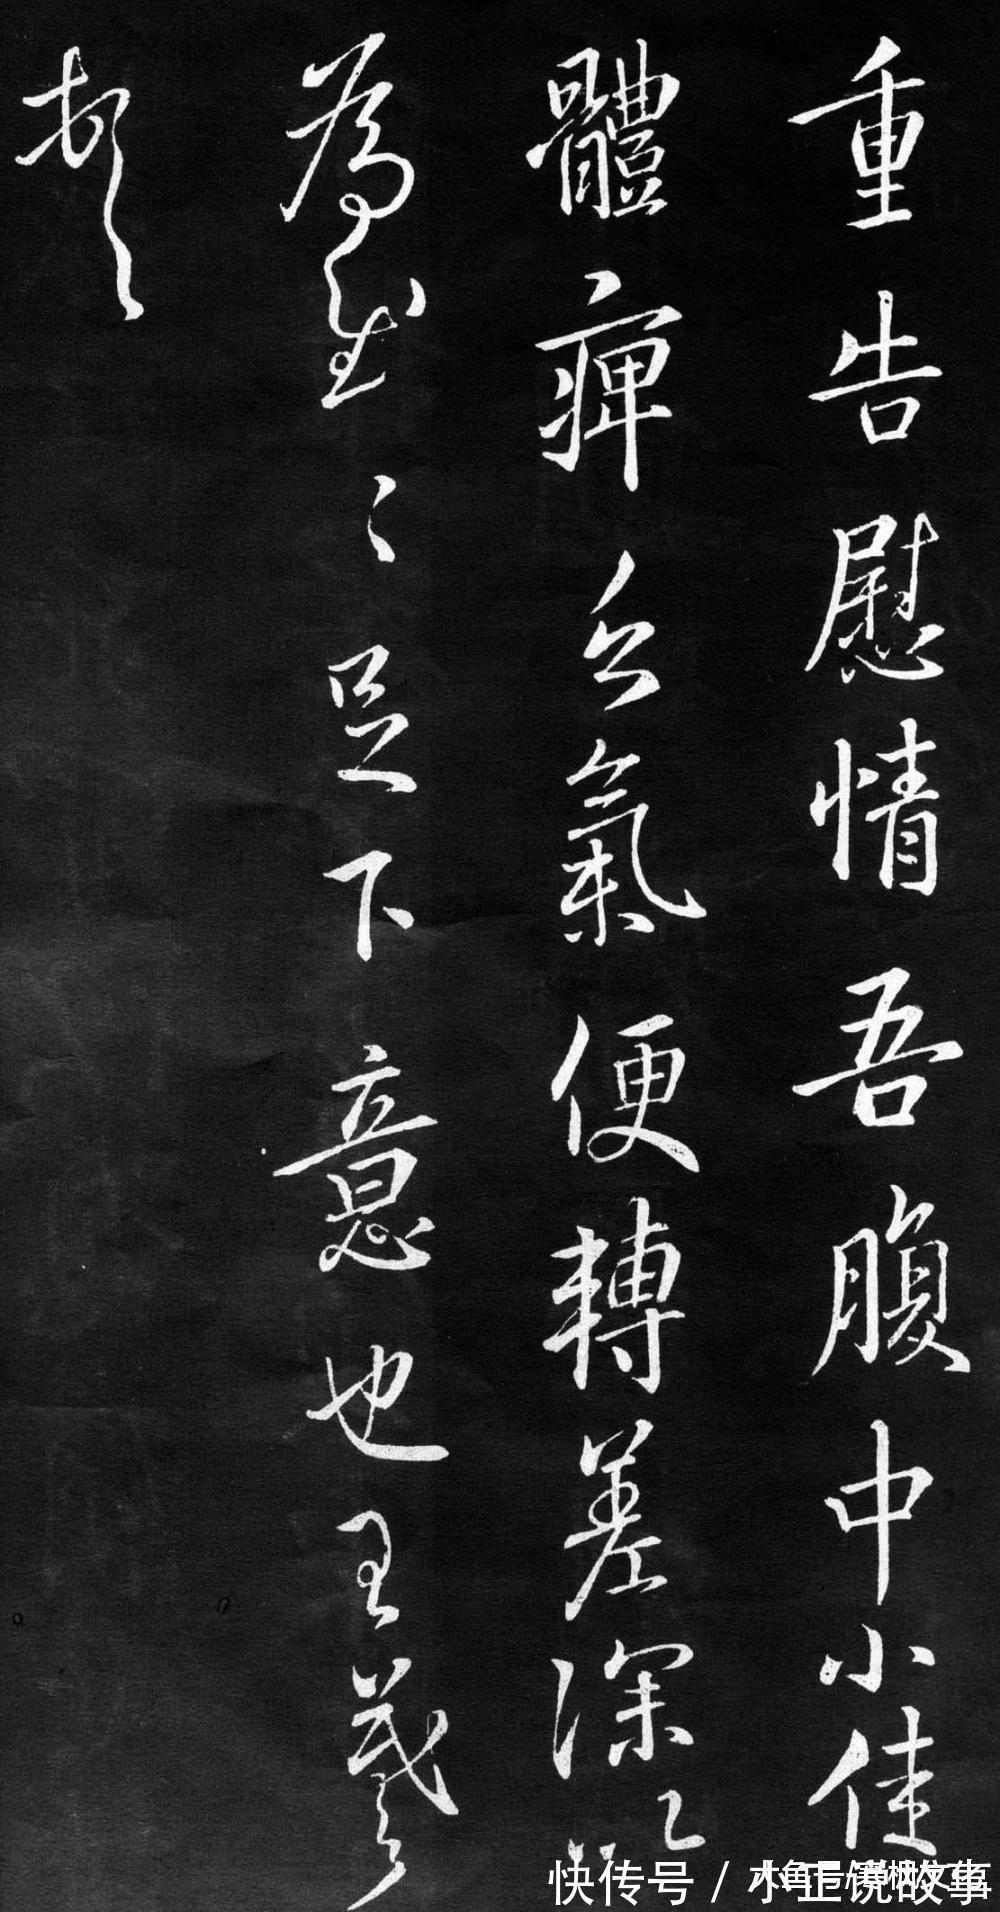 重告慰情吾腹中小佳
體痺氣便轉差深以
為足下意也王羲之
頓首
快传号 / 小正说故事